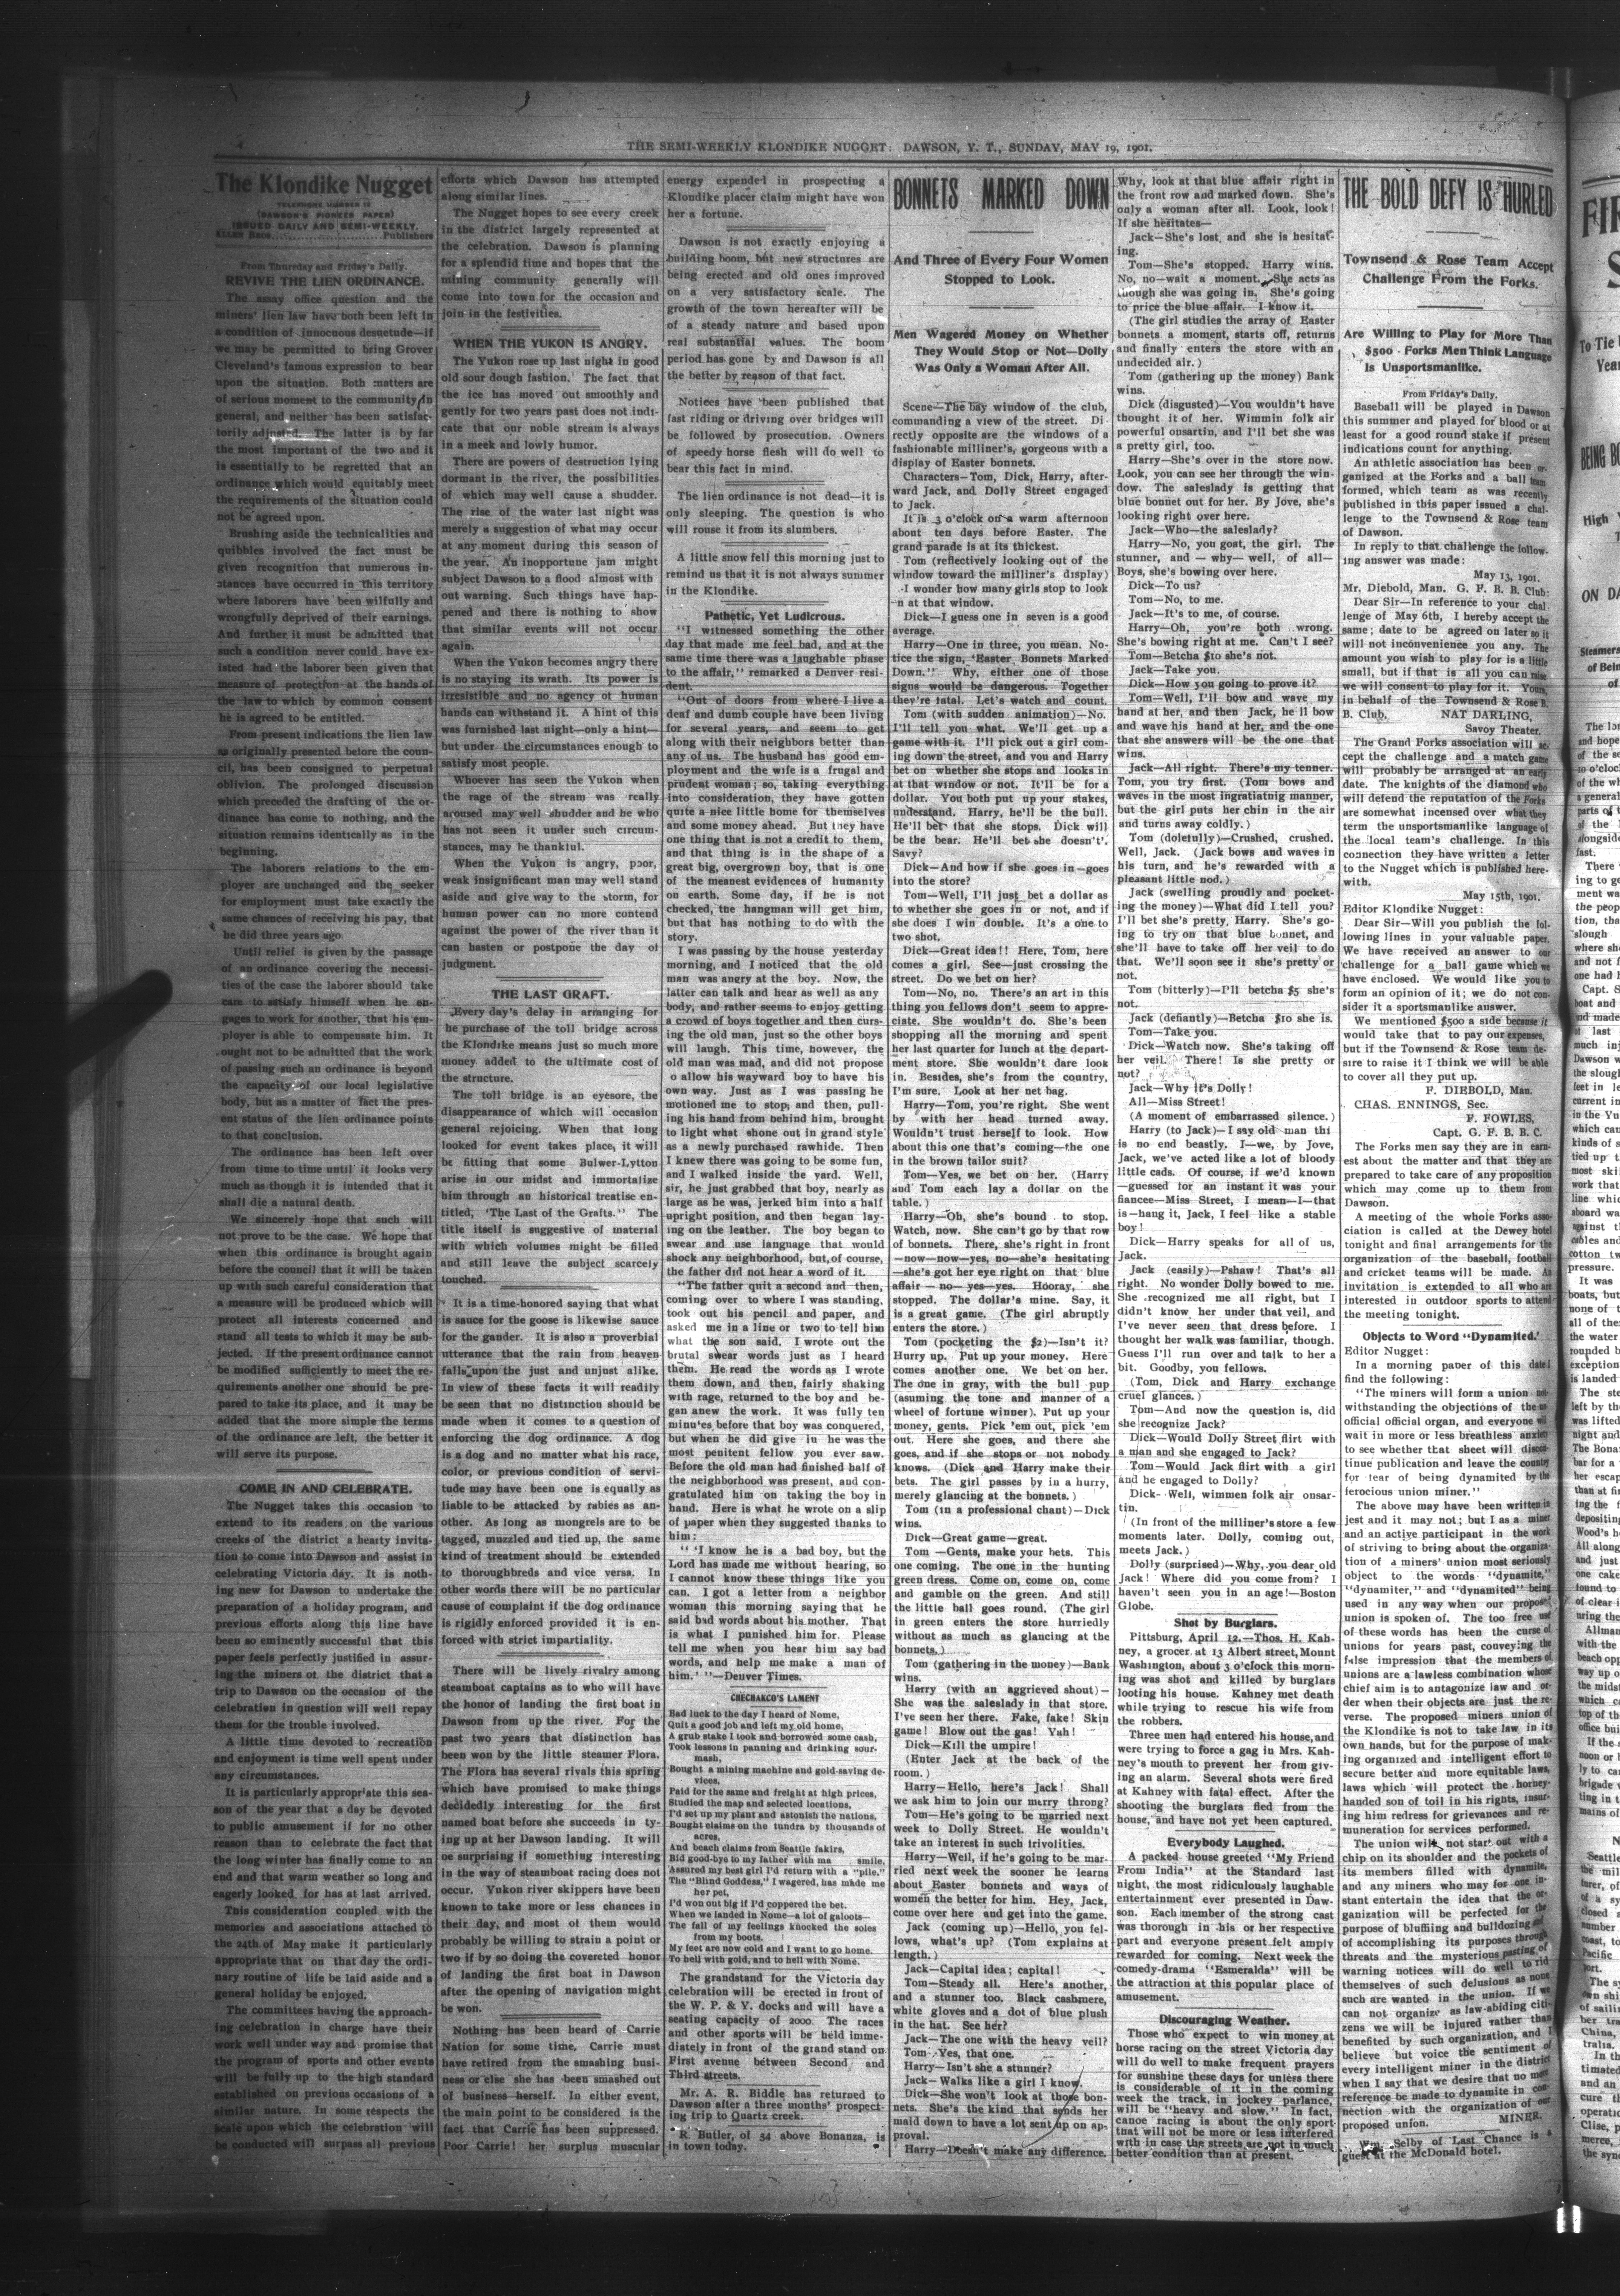 4
THE SEMI-WEEKLY KLONDIKE NUGGET: DAWSON, Y. T., SUNDAY, MAY 19, 1901.
The Klondike Nugget
TELEPHONE NUMBER 12
(DAWSON'S PIONEER PAPER)
ISSUED DAILY AND SEMI-WEEKLY.
ALLEN BROS. Publishers
From Thursday and Friday's Daily.
REVIVE THE LIEN ORDINANCE.
The assay office question and the
miners' lien law have both been left in
a condition of innocuous desuetude—if
we may be permitted to bring Grover
Cleveland's famous expression to bear
upon the situation. Both matters are
of serious moment to the community in
general, and neither has been satisfac-
torily adjusted. The latter is by far
the most important of the two and it
is essentially to be regretted that an
ordinance which would equitably meet
the requirements of the situation could
not be agreed upon.
Brushing aside the technicalities and
quibbles involved the fact must be
given recognition that numerous in-
stances have occurred in this territory
where laborers have been wilfully and
wrongfully deprived of their earnings.
And further it must be admitted that
such a condition never could have ex-
isted had the laborer been given that
measure of protection at the hands of
the law to which by common consent
he is agreed to be entitled.
From present indications the lien law
as originally presented before the coun-
cil, has been consigned to perpetual
oblivion. The prolonged discussion
which preceded the drafting of the or-
dinance has come to nothing, and the
situation remains identically as in the
beginning.
The laborers relations to the em-
ployer are unchanged and the seeker
for employment must take exactly the
same chances of receiving his pay, that
he did three years ago.
Until relief is given by the passage
of an ordinance covering the necessi-
ties of the case the laborer should take
care to satisfy himself when he en-
gages to work for another, that his em-
ployer is able to compensate him. It
ought not to be admitted that the work
of passing such an ordinance is beyond
the capacity of our local legislative
body, but as a matter of fact the pres-
ent status of the lien ordinance points
to that conclusion.
The ordinance has been left over
from time to time until it looks very
much as though it is intended that it
shall die a natural death.
We sincerely hope that such will
not prove to be the case. We hope that
when this ordinance is brought again
before the council that it will be taken
up with such careful consideration that
a measure will be produced which will
protect all interests concerned and
stand all tests to which it may be sub-
jected. If the present ordinance cannot
be modified sufficiently to meet the re-
quirements another one should be pre-
pared to take its place, and it may be
added that the more simple the terms
of the ordinance are left, the better it
will serve its purpose.
COME IN AND CELEBRATE.
The Nugget takes this occasion to
extend to its readers on the various
creeks of the district a hearty invita-
tion to come into Dawson and assist in
celebrating Victoria day. It is noth-
ing new for Dawson to undertake the
preparation of a holiday program, and
previous efforts along this line have
been so eminently successful that this
paper feels perfectly justified in assur-
ing the miners of the district that a
trip to Dawson on the occasion of the
celebration in question will well repay
them for the trouble involved.
A little time devoted to recreation
and enjoyment is time well spent under
any circumstances.
It is particularly appropriate this sea-
son of the year that a day be devoted
to public amusement if for no other
reason than to celebrate the fact that
the long winter has finally come to an
end and that warm weather so long and
eagerly looked for has at last arrived.
This consideration coupled with the
memories and associations attached to
the 24th of May make it particularly
appropriate that on that day the ordi-
nary routine of life be laid aside and a
general holiday be enjoyed.
The committees having the approach-
ing celebration in charge have their
work well under way and promise that
the program of sports and other events
will be fully up to the high standard
established on previous occasions of a
similar nature. In some respects the
scale upon which the celebration will
be conducted will surpass all previous
efforts which Dawson has attempted
along similar lines.
The Nugget hopes to see every creek
in the district largely represented at
the celebration. Dawson is planning
for a splendid time and hopes that the
mining community generally will
come into town for the occasion and
join in the festivities.
WHEN THE YUKON IS ANGRY.
The Yukon rose up last night in good
old sour dough fashion. The fact that
the ice has moved out smoothly and
gently for two years past does not indi-
cate that our noble stream is always
in a meek and lowly humor.
There are powers of destruction lying
dormant in the river, the possibilities
of which may well cause a shudder.
The rise of the water last night was
merely a suggestion of what may occur
at any moment during this season of
the year. An inopportune jam might
subject Dawson to a flood almost with
out warning. Such things have hap-
pened and there is nothing to show
that similar events will not occur
again.
When the Yukon becomes angry there
is no staying its wrath. Its power is
irresistible and no agency of human
hands can withstand it. A hint of this
was furnished last night—only a hint—
but under the circumstances enough to
satisfy most people.
Whoever has seen the Yukon when
the rage of the stream was really
aroused may well shudder and he who
has not seen it under such circum-
stances, may be thankful.
When the Yukon is angry, poor,
weak insignificant man may well stand
aside and give way to the storm, for
human power can no more contend
against the power of the river than it
can hasten or postpone the day of
judgment.
THE LAST GRAFT.
Every day's delay in arranging for
he purchase of the toll bridge across
the Klondike means just so much more
money added to the ultimate cost of
the structure.
The toll bridge is an eyesore, the
disappearance of which will occasion
general rejoicing. When that long
looked for event takes place, it will
be fitting that some Bulwer-Lytton
arise in our midst and immortalize
him through an historical treatise en-
titled, 'The Last of the Grafts." The
title itself is suggestive of material
with which volumes might be filled
and still leave the subject scarcely
touched.
It is a time-honored saying that what
is sauce for the goose is likewise sauce
for the gander. It is also a proverbial
utterance that the rain from heaven
falls upon the just and unjust alike.
In view of these facts it will readily
be seen that no distinction should be
made when it comes to a question of
enforcing the dog ordinance. A dog
is a dog and no matter what his race,
color, or previous condition of servi-
tude may have been one is equally as
liable to be attacked by rabies as an-
other. As long as mongrels are to be
tagged, muzzled and tied up, the same
kind of treatment should be extended
to thoroughbreds and vice versa. In
other words there will be no particular
cause of complaint if the dog ordinance
is rigidly enforced provided it is en-
forced with strict impartiality.
There will be lively rivalry among
steamboat captains as to who will have
the honor of landing the first boat in
Dawson from up the river. For the
past two years that distinction has
been won by the little steamer Flora.
The Flora has several rivals this spring
which have promised to make things
decidedly interesting for the first
named boat before she succeeds in ty-
ing up at her Dawson landing. It will
be surprising if something interesting
in the way of steamboat racing does not
occur. Yukon river skippers have been
known to take more or less chances in
their day, and most of them would
probably be willing to strain a point or
two if by so doing the covereted honor
of landing the first boat in Dawson
after the opening of navigation might
be won.
Nothing has been heard of Carrie
Nation for some time. Carrie must
have retired from the smashing busi-
ness or else she has been smashed out
of business herself. In either event,
the main point to be considered is the
fact that Carrie has been suppressed.
Poor Carrie! her surplus muscular
energy expended in prospecting a
Klondike placer claim might have won
her a fortune.
Dawson is not exactly enjoying a
building boom, but new structures are
being erected and old ones improved
on a very satisfactory scale. The
growth of the town hereafter will be
of a steady nature and based upon
real substantial values. The boom
period has gone by and Dawson is all
the better by reason of that fact.
Notices have been published that
fast riding or driving over bridges will
be followed by prosecution. Owners
of speedy horse flesh will do well to
bear this fact in mind.
The lien ordinance is not dead—it is
only sleeping. The question is who
will rouse it from its slumbers.
A little snow fell this morning just to
remind us that it is not always summer
in the Klondike.
Pathetic, Yet Ludicrous.
"I witnessed something the other
day that made me feel bad, and at the
same time there was a laughable phase
to the affair," remarked a Denver resi-
dent.
"Out of doors from where I live a
deaf and dumb couple have been living
for several years, and seem to get
along with their neighbors better than
any of us. The husband has good em-
ployment and the wife is a frugal and
prudent woman; so, taking everything
into consideration, they have gotten
quite a nice little home for themselves
and some money ahead. But they have
one thing that is not a credit to them,
and that thing is in the shape of a
great big, overgrown boy, that is one
of the meanest evidences of humanity
on earth. Some day, if he is not
checked, the hangman will get him,
but that has nothing to do with the
story.
I was passing by the house yesterday
morning, and I noticed that the old
man was angry at the boy. Now, the
latter can talk and hear as well as any
body, and rather seems to enjoy getting
a crowd of boys together and then curs-
ing the old man, just so the other boys
will laugh. This time, however, the
old man was mad, and did not propose
o allow his wayward boy to have his
own way. Just as I was passing he
motioned me to stop, and then, pull-
ing his hand from behind him, brought
to light what shone out in grand style
as a newly purchased rawhide. Then
I knew there was going to be some fun,
and I walked inside the yard. Well,
sir, he just grabbed that boy, nearly as
large as he was, jerked him into a half
upright position, and then began lay-
ing on the leather. The boy began to
swear and use language that would
shock any neighborhood, but, of course,
the father did not hear a word of it.
"The father quit a second and then,
coming over to where I was standing,
took out his pencil and paper, and
asked me in a line or two to tell him
what the son said. I wrote out the
brutal swear words just as I heard
them. He read the words as I wrote
them down, and then, fairly shaking
with rage, returned to the boy and be-
gan anew the work. It was fully ten
minutes before that boy was conquered,
but when he did give in he was the
most penitent fellow you ever saw.
Before the old man had finished half of
the neighborhood was present, and con-
gratulated him on taking the boy in
hand. Here is what he wrote on a slip
of paper when they suggested thanks to
him:
" 'I know he is a bad boy, but the
Lord has made me without hearing, so
I cannot know these things like you
can. I got a letter from a neighbor
woman this morning saying that he
said bad words about his mother. That
is what I punished him for. Please
tell me when you hear him say bad
words, and help me make a man of
him.' "—Denver Times.
CHECHAKCO'S LAMENT
Bad luck to the day I heard of Nome,
Quit a good job and left my old home,
A grub stake I took and borrowed some cash,
Took lessons in panning and drinking sour-
mash,
Bought a mining machine and gold-saving de-
vices,
Paid for the same and freight at high prices,
Studied the map and selected locations,
I'd set up my plant and astonish the nations.
Bought claims on the tundra by thousands of
acres,
And beach claims from Seattle fakirs,
Bid good-bye to my father with ma smile,
Assured my best girl I'd return with a "pile."
The "Blind Goddess," I wagered, has made me
her pet,
I'd won out big if I'd coppered the bet.
When we landed in Nome—a lot of galoots—
The fall of my feelings knocked the soles
from my boots.
My feet are now cold and I want to go home.
To hell with gold, and to hell with Nome.
The grandstand for the Victoria day
celebration will be erected in front of
the W. P. & Y. docks and will have a
seating capacity of 2000. The races
and other sports will be held imme-
diately in front of the grand stand on
First avenue between Second and
Third streets.
Mr. A. R. Biddle has returned to
Dawson after a three months' prospect-
ing trip to Quartz creek.
R. Butler, of 34 above Bonanza, is
in town today.
BONNETS MARKED DOWN
And Three of Every Four Women
Stopped to Look.
Men Wagered Money on Whether
They Would Stop or Not—Dolly
Was Only a Woman After All.
Scene—The bay window of the club,
commanding a view of the street. Di
rectly opposite are the windows of a
fashionable milliner's, gorgeous with a
display of Easter bonnets.
Characters—Tom, Dick, Harry, after-
ward Jack, and Dolly Street engaged
to Jack.
It is 3 o'clock on a warm afternoon
about ten days before Easter. The
grand parade is at its thickest.
Tom (reflectively looking out of the
window toward the milliner's display)
-I wonder how many girls stop to look
n at that window.
Dick—I guess one in seven is a good
average.
Harry—One in three, you mean. No-
tice the sign, 'Easter Bonnets Marked
Down.' Why, either one of those
signs would be dangerous. Together
they're fatal. Let's watch and count.
Tom (with sudden animation)—No.
I'll tell you what. We'll get up a
game with it. I'll pick out a girl com-
ing down the street, and you and Harry
bet on whether she stops and looks in
at that window or not. It'll be for a
dollar. You both put up your stakes,
understand. Harry, he'll be the bull.
He'll bet that she stops. Dick will
be the bear. He'll bet she doesn't.
Savy?
Dick—And how if she goes in—goes
into the store?
Tom—Well, I'll just bet a dollar as
to whether she goes in or not, and if
she does I win double. It's a one to
two shot.
Dick—Great idea!! Here, Tom, here
comes a girl. See—just crossing the
street. Do we bet on her?
Tom—No, no. There's an art in this
thing you fellows don't seem to appre-
ciate. She wouldn't do. She's been
shopping all the morning and spent
her last quarter for lunch at the depart-
ment store. She wouldn't dare look
in. Besides, she's from the country,
I'm sure. Look at her net bag.
Harry—Tom, you're right. She went
by with her head turned away.
Wouldn't trust herself to look. How
about this one that's coming—the one
in the brown tailor suit?
Tom—Yes, we bet on her. (Harry
and Tom each lay a dollar on the
table.)
Harry—Oh, she's bound to stop.
Watch, now. She can't go by that row
of bonnets. There, she's right in front
—now—now—yes, no—she's hesitating
—she's got her eye right on that blue
affair—no—yes—yes. Hooray, she
stopped. The dollar's mine. Say, it
is a great game. (The girl abruptly
enters the store.)
Tom (pocketing the $2)—Isn't it?
Hurry up. Put up your money. Here
comes another one. We bet on her.
The one in gray, with the bull pup
(asuming the tone and manner of a
wheel of fortune winner). Put up your
money, gents. Pick 'em out, pick 'em
out. Here she goes, and there she
goes, and if she stops or not nobody
knows. (Dick and Harry make their
bets. The girl passes by in a hurry,
merely glancing at the bonnets.)
Tom (in a professional chant)—Dick
wins.
Dick—Great game—great.
Tom—Gents, make your bets. This
one coming. The one in the hunting
green dress. Come on, come on, come
and gamble on the green. And still
the little ball goes round. (The girl
in green enters the store hurriedly
without as much as glancing at the
bonnets.)
Tom (gathering in the money)—Bank
wins.
Harry (with an aggrieved shout)—
She was the saleslady in that store.
I've seen her there. Fake, fake! Skin
game! Blow out the gas! Yah!
Dick—Kill the umpire!
(Enter Jack at the back of the
room.)
Harry—Hello, here's Jack! Shall
we ask him to join our merry throng?
Tom—He's going to be married next
week to Dolly Street. He wouldn't
take an interest in such trivolities.
Harry—Well, if he's going to be mar-
ried next week the sooner he learns
about Easter bonnets and ways of
women the better for him. Hey, Jack,
come over here and get into the game.
Jack (coming up)—Hello, you fel-
lows, what's up? (Tom explains at
length.)
Jack—Capital idea; capital!
Tom—Steady all. Here's another,
and a stunner too. Black cashmere,
white gloves and a dot of blue plush
in the hat. See her?
Jack—The one with the heavy veil?
Tom—Yes, that one.
Harry—Isn't she a stunner?
Jack—Walks like a girl I know.
Dick—She won't look at those bon-
nets. She's the kind that sends her
maid down to have a lot sent up on ap-
proval.
Harry—Doesn't make any difference.
Why, look at that blue affair right in
the front row and marked down. She's
only a woman after all. Look, look!
If she hesitates—
Jack—She's lost, and she is hesitat-
ing.
Tom—She's stopped. Harry wins.
No, no—wait a moment. She acts as
though she was going in. She's going
to price the blue affair. I know it.
(The girl studies the array of Easter
bonnets a moment, starts off, returns
and finally enters the store with an
undecided air.)
Tom (gathering up the money) Bank
wins.
Dick (disgusted)—You wouldn't have
thought it of her. Wimmin folk air
powerful onsartin, and I'll bet she was
a pretty girl, too.
Harry—She's over in the store now.
Look, you can see her through the win-
dow. The saleslady is getting that
blue bonnet out for her. By Jove, she's
looking right over here.
Jack—Who—the saleslady?
Harry—No, you goat, the girl. The
stunner, and — why— well, of all—
Boys, she's bowing over here.
Dick—To us?
Tom—No, to me.
Jack—It's to me, of course.
Harry—Oh, you're both wrong.
She's bowing right at me. Can't I see?
Tom—Betcha $10 she's not.
Jack—Take you.
Dick—How you going to prove it?
Tom—Well, I'll bow and wave my
hand at her, and then Jack, he'll bow
and wave his hand at her, and the one
that she answers will be the one that
wins.
Jack—All right. There's my tenner.
Tom, you try first. (Tom bows and
waves in the most ingratiatnig manner,
but the girl puts her chin in the air
and turns away coldly.)
Tom (dolefully)—Crushed, crushed.
Well, Jack. (Jack bows and waves in
his turn, and he's rewarded with a
pleasant little nod.)
Jack (swelling proudly and pocket-
ing the money)—What did I tell you?
I'll bet she's pretty, Harry. She's go-
ing to try on that blue bonnet, and
she'll have to take off her veil to do
that. We'll soon see it she's pretty or
not.
Tom (bitterly)—I'll betcha $5 she's
not.
Jack (defiantly)—Betcha $10 she is.
Tom—Take you.
Dick—Watch now. She's taking off
her veil. There! Is she pretty or
not?
Jack—Why it's Dolly!
All—Miss Street!
(A moment of embarrassed silence.)
Harry (to Jack)—I say old man thi
is no end beastly. I—we, by Jove,
Jack, we've acted like a lot of bloody
little cads. Of course, if we'd known
—guessed for an instant it was your
fiancee—Miss Street, I mean—I—that
is—hang it, Jack, I feel like a stable
boy!
Dick—Harry speaks for all of us,
Jack.
Jack (easily)—Pshaw! That's all
right. No wonder Dolly bowed to me.
She recognized me all right, but I
didn't know her under that veil, and
I've never seen that dress before. I
thought her walk was familiar, though.
Guess I'll run over and talk to her a
bit. Goodby, you fellows.
(Tom, Dick and Harry exchange
cruel glances.)
Tom—And now the question is, did
she recognize Jack?
Dick—Would Dolly Street flirt with
a man and she engaged to Jack?
Tom—Would Jack flirt with a girl
and he engaged to Dolly?
Dick-Well, wimmen folk air onsar-
tin.
(In front of the milliner's store a few
moments later. Dolly, coming out,
meets Jack.)
Dolly (surprised)—Why, you dear old
Jack! Where did you come from? I
haven't seen you in an age!—Boston
Globe.
Shot by Burglars.
Pittsburg, April 12.—Thos. H. Kah-
ney, a grocer at 13 Albert street, Mount
Washington, about 3 o'clock this morn-
ing was shot and killed by burglars
looting his house. Kahney met death
while trying to rescue his wife from
the robbers.
Three men had entered his house, and
were trying to force a gag in Mrs. Kah-
ney's mouth to prevent her from giv-
ing an alarm. Several shots were fired
at Kahney with fatal effect. After the
shooting the burglars fled from the
house, and have not yet been captured.
Everybody Laughed.
A packed house greeted "My Friend
From India" at the Standard last
night, the most ridiculously laughable
entertainment ever presented in Daw-
son. Each member of the strong cast
was thorough in his or her respective
part and everyone present felt amply
rewarded for coming. Next week the
comedy-drama "Esmeralda" will be
the attraction at this popular place of
amusement.
Discouraging Weather.
Those who expect to win money at
horse racing on the street Victoria day
will do well to make frequent prayers
for sunshine these days for unless there
is considerable of it in the coming
week the track, in jockey parlance,
will be "heavy and slow." In fact,
canoe racing is about the only sport
that will not be more or less interfered
with in case the streets are not in much
better condition than at present.
THE BOLD DEFY IS HURLED
Townsend & Rose Team Accept
Challenge From the Forks.
Are Willing to Play for More Than
$500 - Forks Men Think Language
Is Unsportsmanlike.
From Friday's Daily.
Baseball will be played in Dawson
this summer and played for blood or at
least for a good round stake if present
indications count for anything.
An athletic association has been or-
ganized at the Forks and a ball team
formed, which team as was recently
published in this paper issued a chal-
lenge to the Townsend & Rose team
of Dawson.
In reply to that challenge the follow-
ing answer was made:
May 13, 1901.
Mr. Diebold, Man. G. F. B. B. Club:
Dear Sir—In reference to your chal
lenge of May 6th, I hereby accept the
same; date to be agreed on later so it
will not inconvenience you any. The
amount you wish to play for is a little
small, but if that is all you can raise
we will consent to play for it. Yours,
in behalf of the Townsend & Rose B.
B. Club, NAT DARLING,
Savoy Theater.
The Grand Forks association will ac-
cept the challenge and a match game
will probably be arranged at an early
date. The knights of the diamond who
will defend the reputation of the Forks
are somewhat incensed over what they
term the unsportsmanlike language of
the local team's challenge. In this
connection they have written a letter
to the Nugget which is published here-
with.
May 15th, 1901.
Editor Klondike Nugget:
Dear Sir—Will you publish the fol-
lowing lines in your valuable paper.
We have received an answer to our
challenge for a ball game which we
have enclosed. We would like you to
form an opinion of it; we do not con-
sider it a sportsmanlike answer.
We mentioned $500 a side because it
would take that to pay our expenses,
but if the Townsend & Rose team de-
sure to raise it I think we will be able
to cover all they put up.
F. DIEBOLD, Man.
CHAS. ENNINGS, Sec.
F. FOWLES,
Capt. G. F. B. B. C.
The Forks men say they are in earn-
est about the matter and that they are
prepared to take care of any proposition
which may come up to them from
Dawson.
A meeting of the whole Forks asso-
ciation is called at the Dewey hotel
tonight and final arrangements for the
organization of the baseball, football
and cricket teams will be made. An
invitation is extended to all who are
interested in outdoor sports to attend
the meeting tonight.
Objects to Word "Dynamited.'
Editor Nugget:
In a morning paper of this date I
find the following:
"The miners will form a union not-
withstanding the objections of the
official official organ, and everyone will
wait in more or less breathless anxiety
to see whether that sheet will discon-
tinue publication and leave the country
for fear of being dynamited by the
ferocious union miner."
The above may have been written in
jest and it may not; but I as a miner
and an active participant in the work
of striving to bring about the organiza-
tion of a miners' union most seriously
object to the words "dynamite,"
"dynamiter," and "dynamited" being
used in any way when our proposed
union is spoken of. The too free use
of these words has been the curse of
unions for years past, conveying the
false impression that the members of
unions are a lawless combination whose
chief aim is to antagonize law and or-
der when their objects are just the re-
verse. The proposed miners union of
the Klondike is not to take law in its
own hands, but for the purpose of mak-
ing organized and intelligent effort to
secure better and more equitable laws,
laws which will protect the horney-
handed son of toil in his rights, insur-
ing him redress for grievances and re-
muneration for services performed.
The union will not start out with a
chip on its shoulder and the pockets of
its members filled with dynamite,
and any miners who may for one in-
stant entertain the idea that the or-
ganization will be perfected for the
purpose of bluffing and bulldozing and
of accomplishing its purposes through
threats and the mysterious pasting of
warning notices will do well to rid
themselves of such delusions as none
such are wanted in the union. If we
can not organize as law-abiding citi-
zens we will be injured rather than
benefited by such organization, and I
believe but voice the sentiment of
every intelligent miner in the district
when I say that we desire that no more
reference be made to dynamite in con-
nection with the organization of our
proposed union. MINER.
Wm. Selby of Last Chance is a
guest at the McDonald hotel.